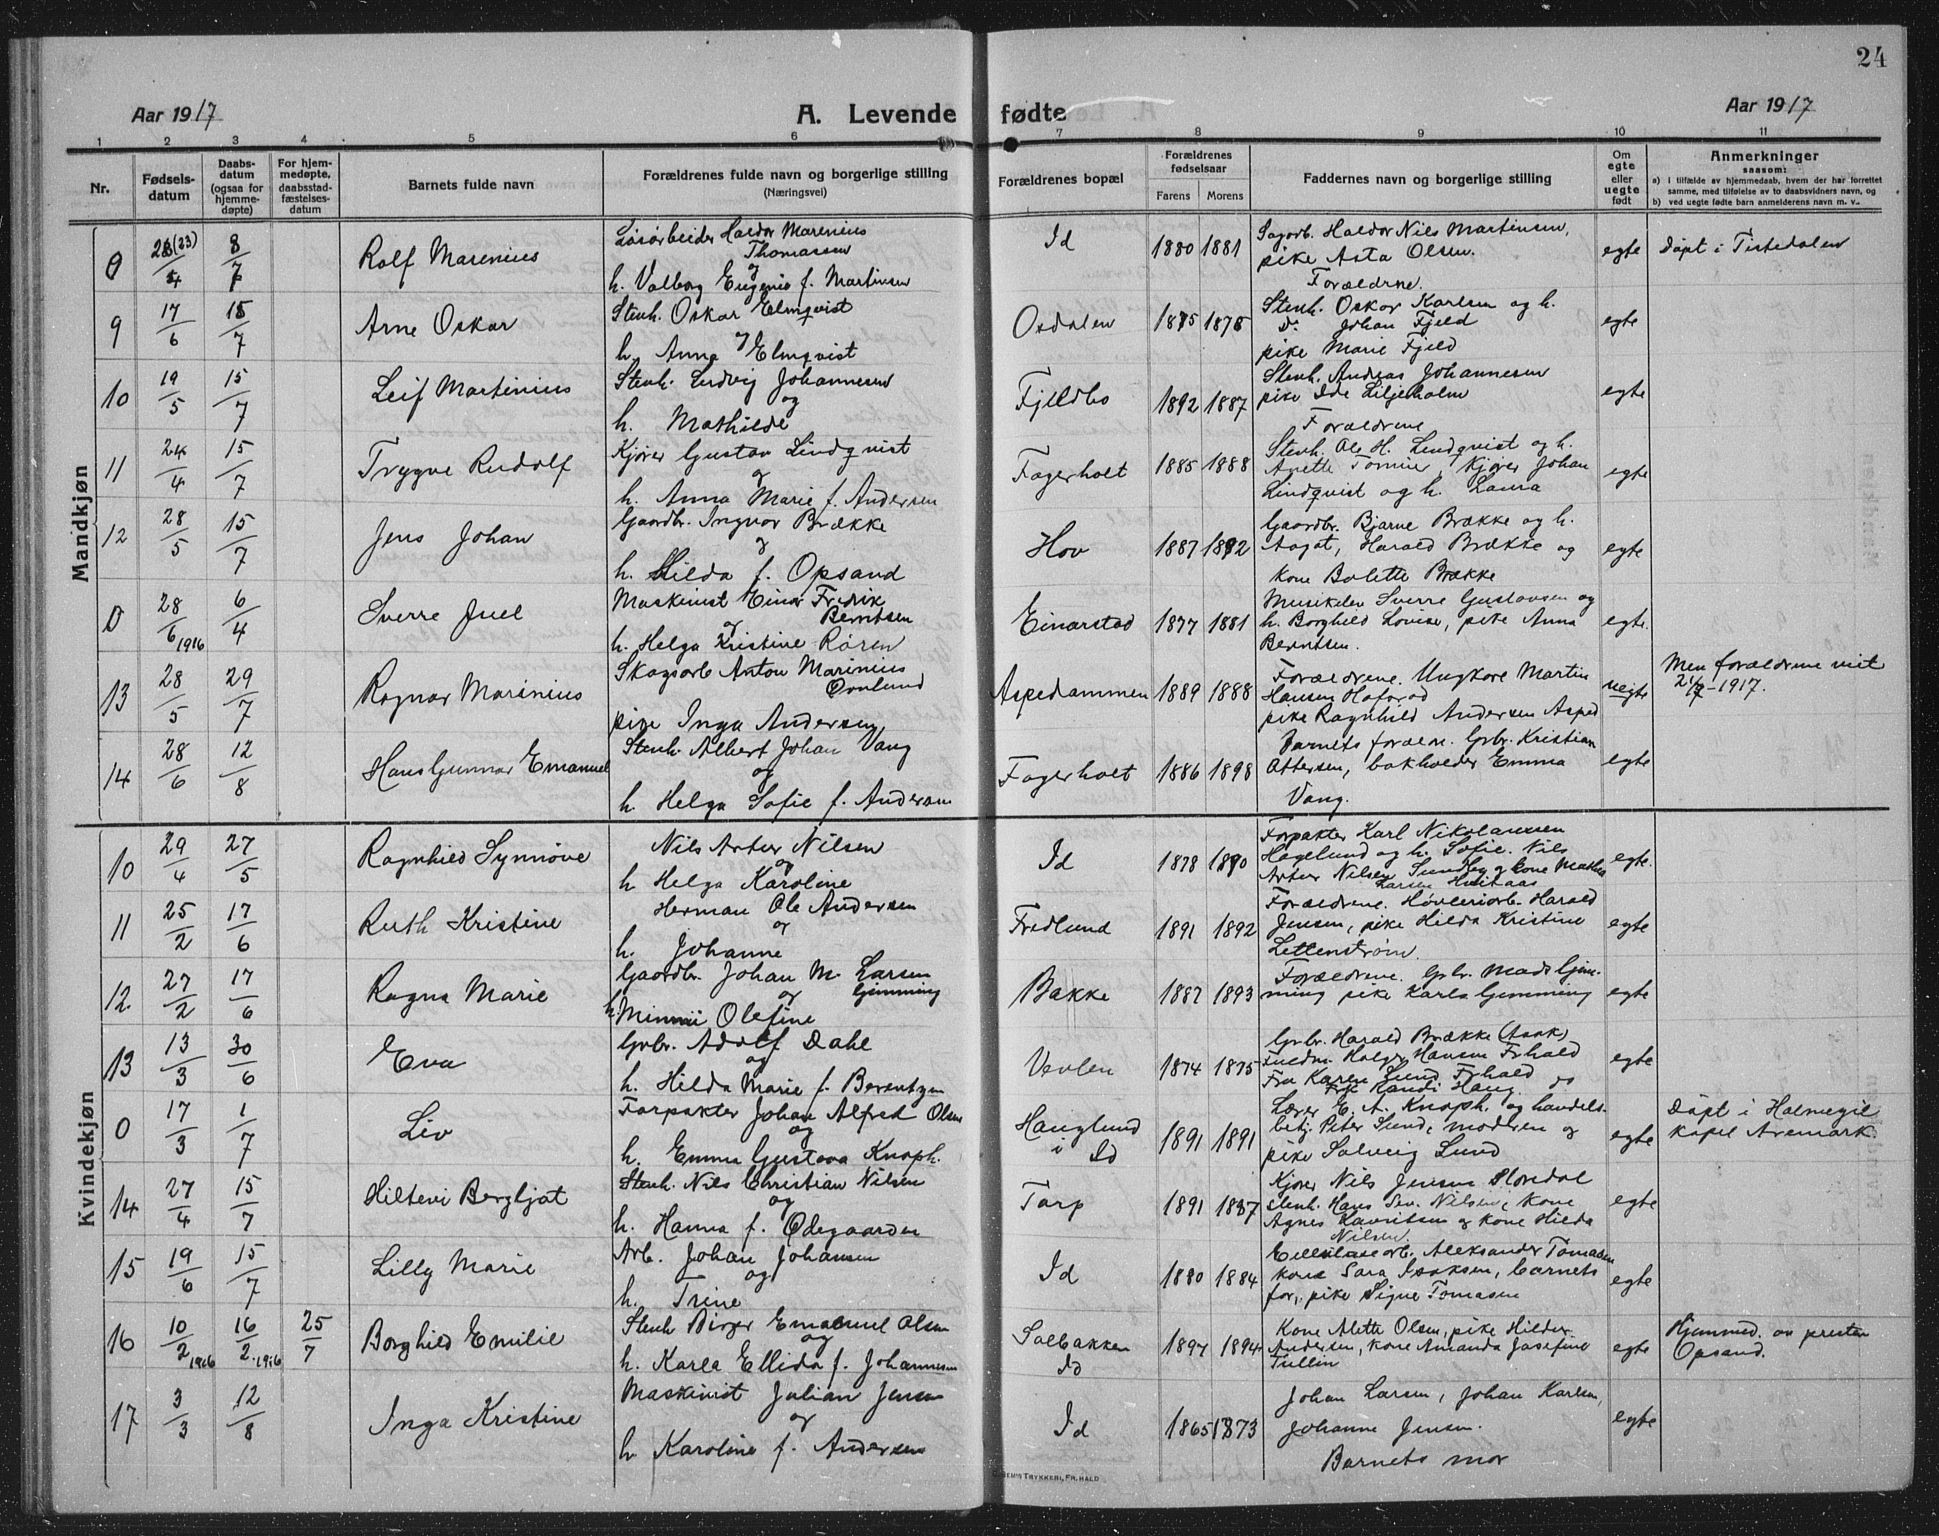 24
Aar 1917
A. Levende fødte
Aar 1917
1 2 3 4 5 6 7 8 9 10 11
Nr.
Fødsels-
datum
Daabs-
datum
(ogsaa for
hjemme-
døpte)
For hjem-
medøpte,
daabsstad-
fæstelses-
datum
Barnets fulde navn
Forældrenes fulde navn og borgerlige stilling
(Næringsvei)
Forældrenes bopæl
Forældrenes
fødselsaar
Farens Morens
Faddernes navn og borgerlige stilling
Om
egte
eller
uegte
født
Anmerkninger
saasom:
a) i tilfælde av hjemmedaab, hvem der har forrettet
samme, med tilføielse av to daabsvidners navn, og
b) ved uegte fødte barn anmelderens navn m. v..
Mandkjøn
0 (23)/4 8/7 Rolf Marenius
Løsarbeider Haldor Marenius
Thomassen
og
h. Valborg Eugenie f. Martinsen
Id 1880 1881
Sagarb. Haldor Nils Martinsen,
pike Asta Olsen.
Forældrene.
egte Døpt i Tistedalen
9 17/6 15/7 Arne Oskar
Stenh. Oskar Elmqvist
og
h. Anna Elmqvist
Osdalen 1875 1875
Stenh. Oskar Karlsen og h.
Do. Johan Fjeld
pike Marie Fjeld
egte
10 19/5 15/7 Leif Martinius
Stenh. Ludvig Johannesen
og
h. Mathilde
Fjeldbo 1892 1887
Stenh. Andreas Johannesen
pike Ida Liljeholm
Forældrene
egte
11 24/4 15/7 Trygve Rudolf
Kjører Gustav Lindqvist
og
h. Anna Marie f. Andersen
Fagerholt 1885 1888
Stenh. Ole H. Lindqvist og h.
Anette Kjører Johan
Lindqvist og h. Laura
egte
12 28/5 15/7 Jens Johan
Gaardbr. Ingvar Brække
og
h. Hilda f. Opsand
Hov 1887 1892
Gaardbr. Bjarne Brække og h.
Aagot, Harald Brække og
kone Bolette Brække
egte
0 28/6 1916 6/4 Sverre Juel
Maskinist Einar Fredrik
Berntsen
og
h. Helga Kristine Røren
Einarstad 1877 1881
Musikeler Sverre Gustavsen og
h. Borghild Lovise, pike Anna
Berntsen.
egte.
13 28/5 29/7 Ragnar Marinius
Skogsarb Anton Marinius
Ovnlund
pike Inga Andersen
Aspedammen 1889 1888
Forældrene. Ungkare Martin
Hansen
pike Ragnhild Andersen Asped
uegte Men forældrene viet
-1917.
14 28/6 12/8 Hans Gunnar Emanuel
Stenh. Albert Johan Vang
og
h. Helga Sofie f. Andersen
Fagerholt 1886 1898
Barnets forældre. Grbr. Kristian
Ottersen, bokholder Emma
Vang.
egte
Kvindekjøn
10 29/4 27/5 Ragnhild Synnøve
Nils Artur Nilsen
og
h Helga Karoline
Id 1878 1890
Forpakter Karl Nikolaussen
Hagelund og h. Sofie. Nils
Artur Nilsen Sundby og kone Mathea
Larsen
egte.
11 25/2 17/6 Ruth Kristine
Herman Ole Andersen
og
h. Johanne
Fredlund 1891 1892
Forældrene. Høvleriarb. Harald
Jensen, pike Hilda Kristine
Lettenstrøm.
egte
12 27/2 17/6 Ragna Marie
Gaardbr. Johan M. Larsen
Gimming
og
h. Minni Olefine
Bakke 1887 1893
Forældrene. Grbr. Mads Gim-
ming pike Karla Gimming
egte
13 13/3 30/6 Eva
Grbr. Adolf Dahl
og
h. Hilda Marie f. Berentzen
Vevlen 1874 1875
Grbr. Harald Brække (Asak)
Fuldm. Holger Hansen Frhald
Fru Karen Lund Frhald
Frk Randi Haug
egte
0 17/3 1/7 Liv
Forpakter Johan Alfred Olsen
og
h. Emma Gustava Knoph.
Hauglund
i Id
1891 1891
Lærer E. A. Knoph. og handels-
betj. Peter Lund, moderen og
pike Solveig Lund
egte Døpt i Holmegil
kapel Aremark.
14 27/4 15/7 Hiltevi Bergljot
Stenh. Nils Christian Nilsen
og
h. Hanna f. Ødegaarden
Torp 1891 1887
Kjører Nils Jensen
stenh. Hans Sev. Nilsen, kone
Agnes Lauritsen og kone Hilda
Nilsen.
egte
15 19/6 15/7 Lilly Marie
Arb. Johan Johansen
og
h. Trine
Id 1880 1884
Cellulosearb. Aleksander Tomasen
kone Sara Isaksen, barnets
for., pike Signe Tomasen
egte
16 10/2 1916 16/2. 1916 25/7 Borghild Emilie
Stenh Birger Emanuel Olsen
og
h. Karla Ellida f. Johannesen
Solbakken
Id
1897 1894
Kone Alette Olsen, pike Hilder
Andersen, kone Amanda Josefine
Tullin
egte Hjemmed. av presten
Opsand.
17 3/3 12/8 Inga Kristine
Maskinist Julian Jensen
og
h Karoline f. Andersen
Id 1865 1873
Johan Larsen, Johan Karlsen,
Johanne Jensen.
Barnets mor
egte
TRYKKERI, FR.HALD